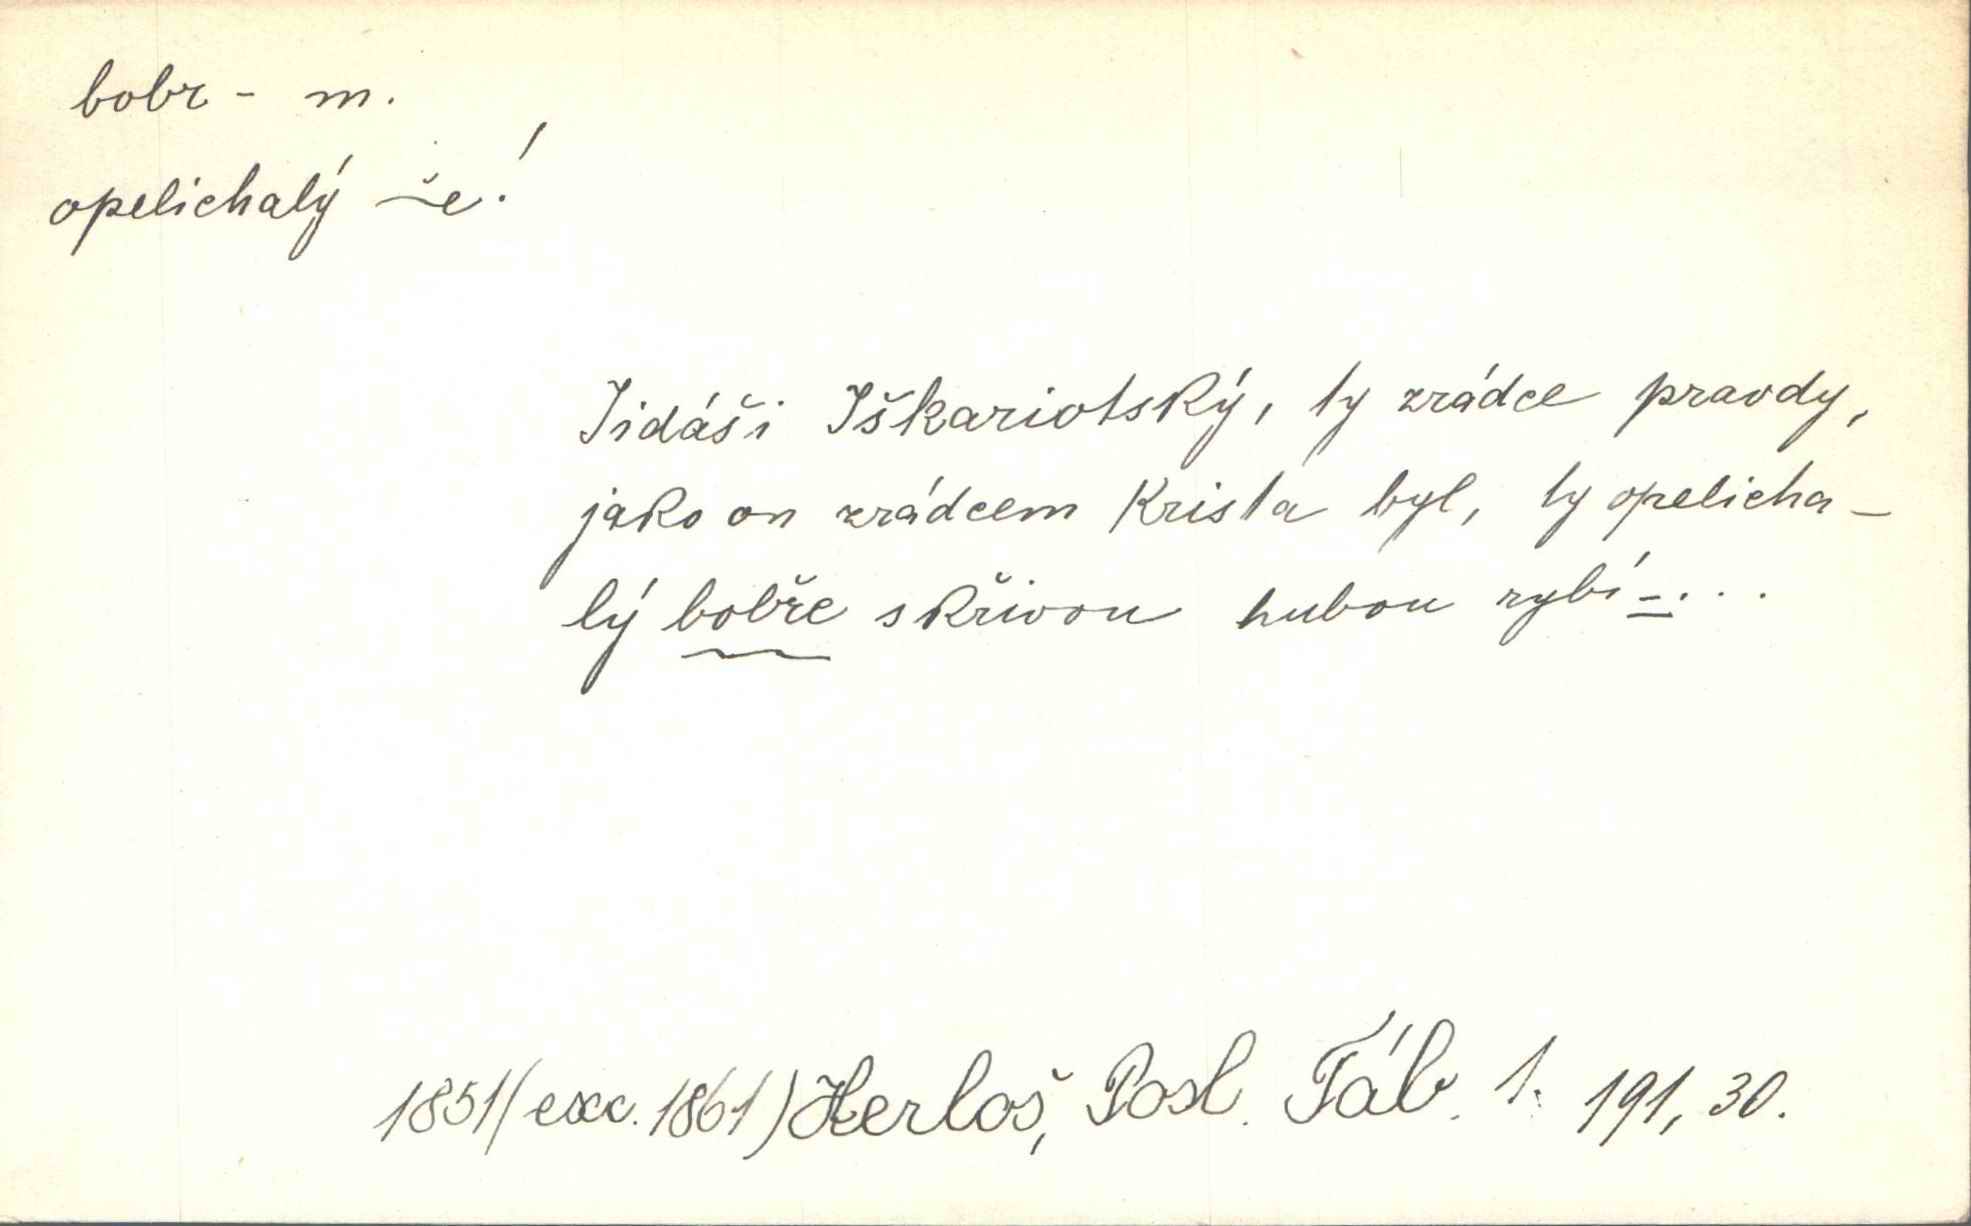 bobr - m.
opelichalý ~e!
Jidáši Iškariotský, ty zrádce pravdy,
jako on zrádcem Krista byl, ty opelicha-
lý bobře s křivou hubou rybí - . . .
1851 (exc. 1861) Herloš, Posl. Táb. 1. 191, 30.